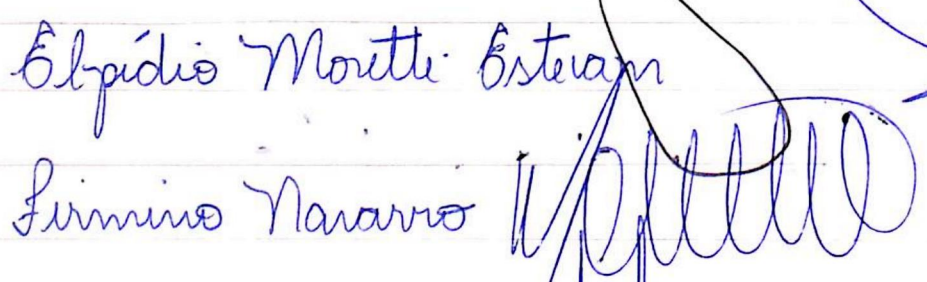 Elpídio Moretti Estevam
Firmino Navarro